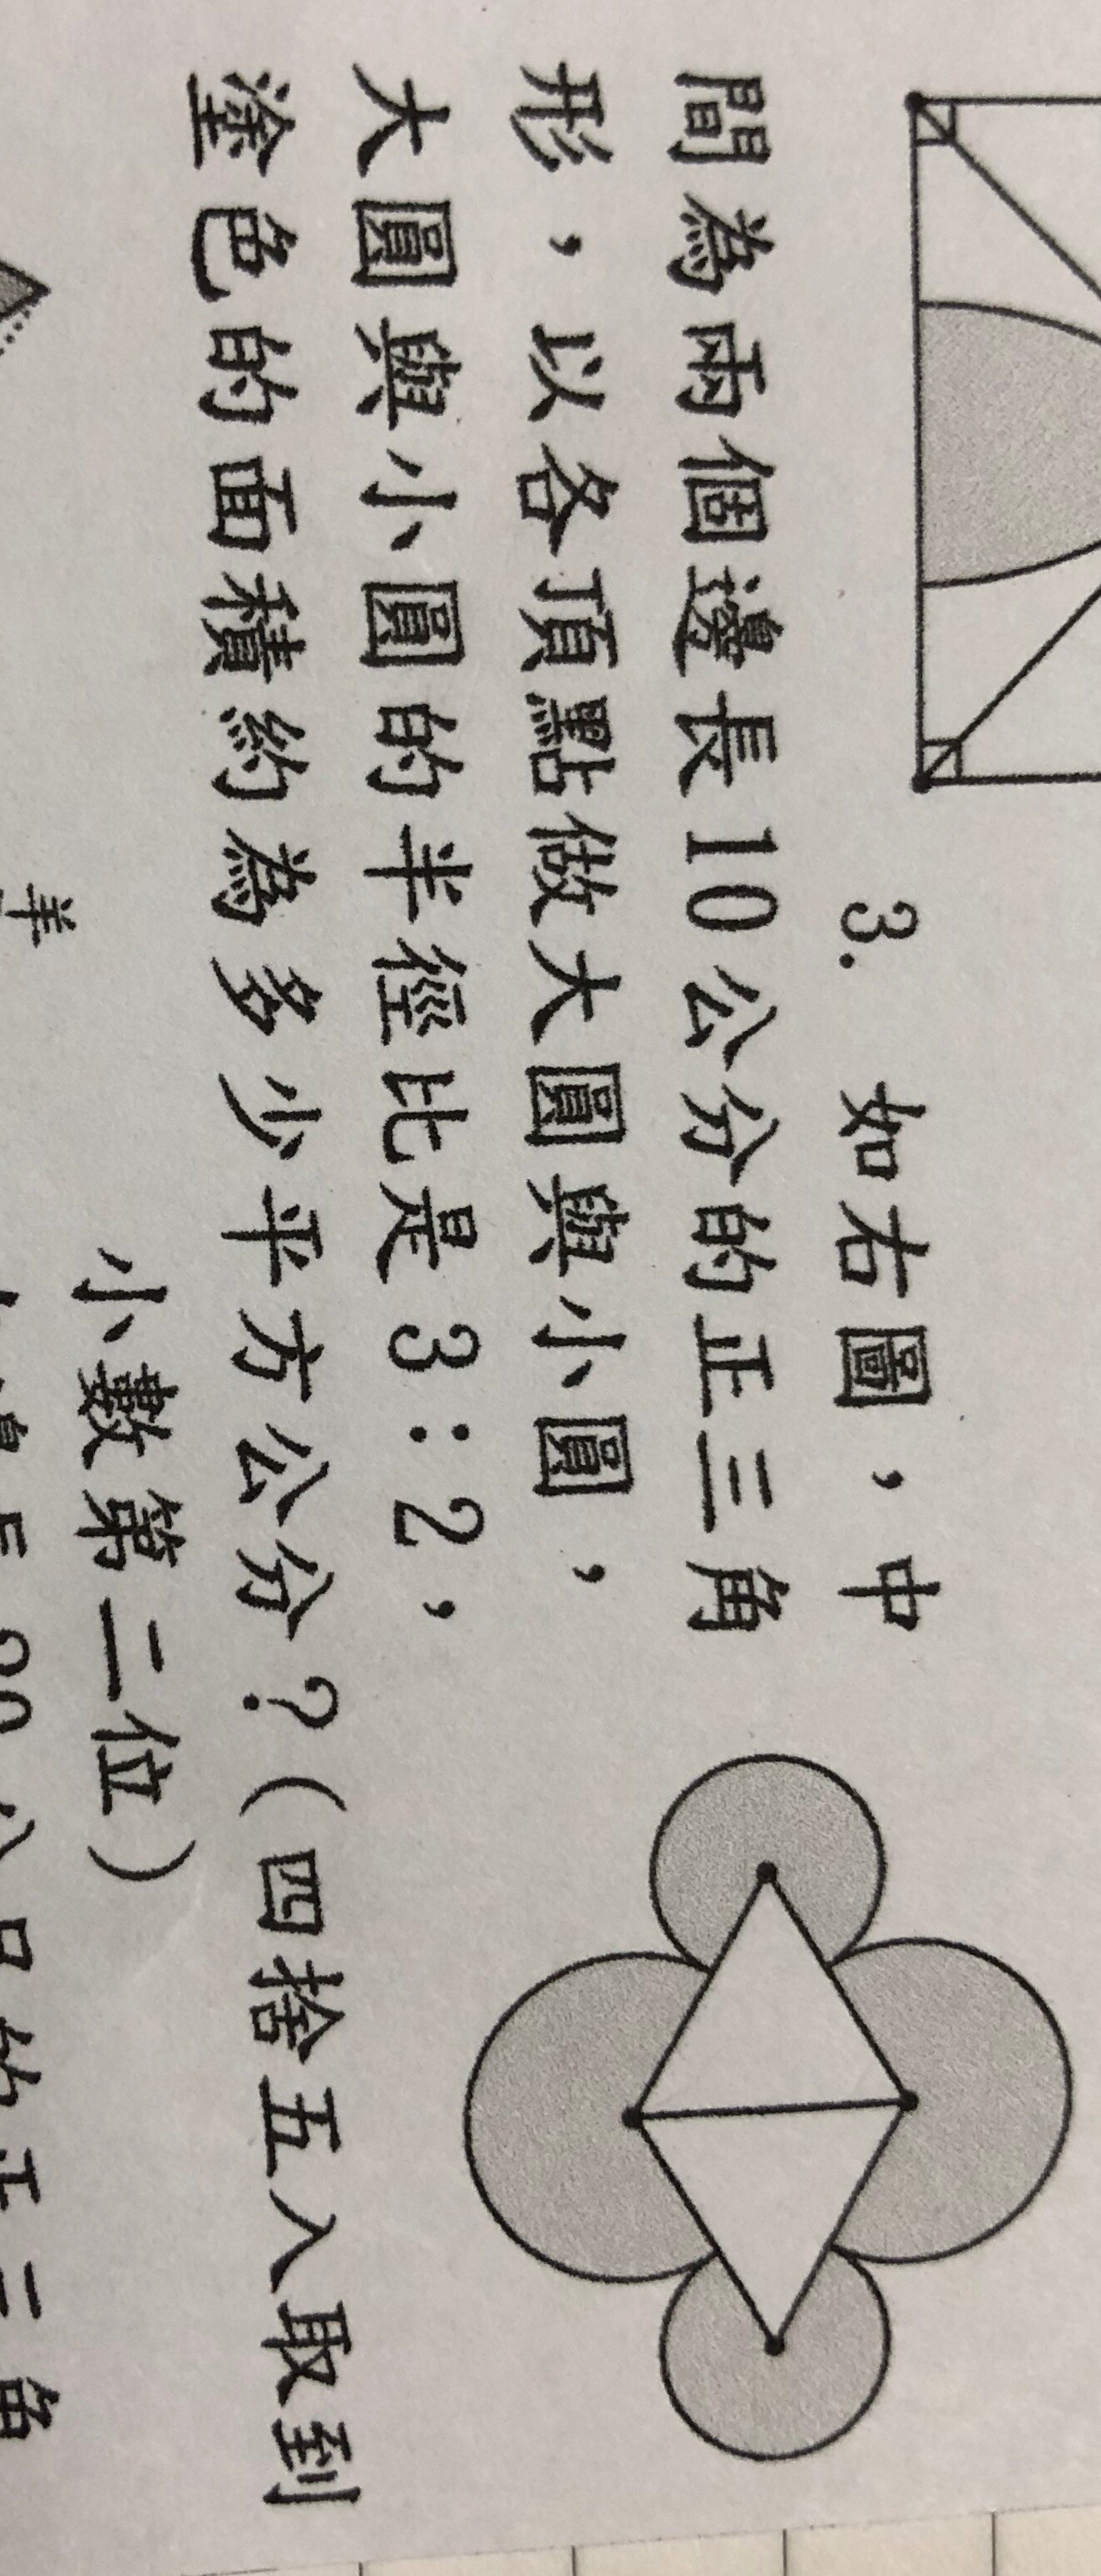 3. 如右圖，中
間為兩個邊長10公分的正三角
形，以各頂點做大圓與小圓，
大圓與小圓的半徑比是3:2，
塗色的面積約為多少平方公分？(四捨五入取到
小數第二位)